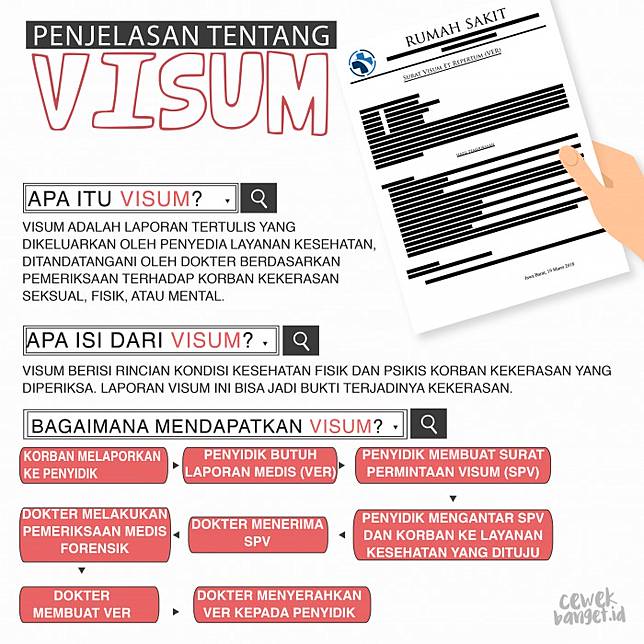 PENJELASAN TENTANG
VISUM
RUMAH SAKIT
SURAT VISUM ET REPERTUM (VER)
Jawa Barat, 19 Maret 2018
APA ITU VISUM?
VISUM ADALAH LAPORAN TERTULIS YANG
DIKELUARKAN OLEH PENYEDIA LAYANAN KESEHATAN,
DITANDATANGANI OLEH DOKTER BERDASARKAN
PEMERIKSAAN TERHADAP KORBAN KEKERASAN
SEKSUAL, FISIK, ATAU MENTAL.
APA ISI DARI VISUM?
VISUM BERISI RINCIAN KONDISI KESEHATAN FISIK DAN PSIKIS KORBAN KEKERASAN YANG
DIPERIKSA. LAPORAN VISUM INI BISA JADI BUKTI TERJADINYA KEKERASAN.
BAGAIMANA MENDAPATKAN VISUM?
KORBAN MELAPORKAN
KE PENYIDIK
PENYIDIK BUTUH
LAPORAN MEDIS (VER)
PENYIDIK MEMBUAT SURAT
PERMINTAAN VISUM (SPV)
PENYIDIK MENGANTAR SPV
DAN KORBAN KE LAYANAN
KESEHATAN YANG DITUJU
DOKTER MENERIMA
SPV
DOKTER MELAKUKAN
PEMERIKSAAN MEDIS
FORENSIK
DOKTER
MEMBUAT VER
DOKTER MENYERAHKAN
VER KEPADA PENYIDIK
cewek
banget.id